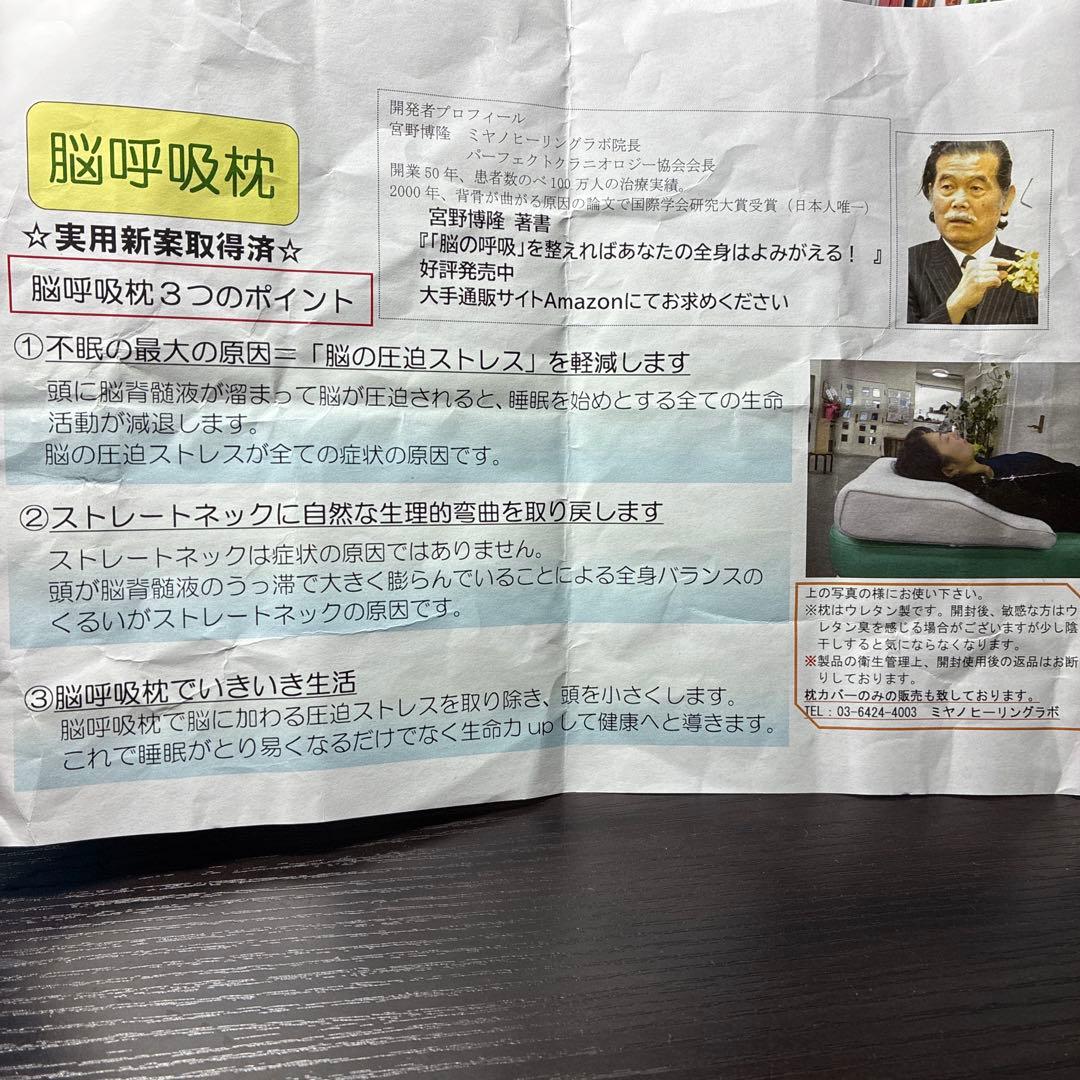 脳呼吸枕
☆実用新案取得済☆
脳呼吸枕3つのポイント
開発者プロフィール
宮野博隆 ミヤノヒーリングラボ院長
パーフェクトクラニオロジー協会会長
開業50年、患者数のべ100万人の治療実績。
2000年、背骨が曲がる原因の論文で国際学会研究大賞受賞(日本人唯一)
宮野博隆 著書
『「脳の呼吸」を整えればあなたの全身はよみがえる! 』
好評発売中
大手通販サイトAmazonにてお求めください
①不眠の最大の原因=「脳の圧迫ストレス」を軽減します
頭に脳脊髄液が溜まって脳が圧迫されると、睡眠を始めとする全ての生命
活動が減退します。
脳の圧迫ストレスが全ての症状の原因です。
②ストレートネックに自然な生理的弯曲を取り戻します
ストレートネックは症状の原因ではありません。
頭が脳脊髄液のうっ滞で大きく膨らんでいることによる全身バランスの
くるいがストレートネックの原因です。
③脳呼吸枕でいきいき生活
脳呼吸枕で脳に加わる圧迫ストレスを取り除き、頭を小さくします。
これで睡眠がとり易くなるだけでなく生命力upして健康へと導きます。
上の写真の様にお使い下さい。
※枕はウレタン製です。開封後、敏感な方はウ
レタン臭を感じる場合がございますが少し陰
干しすると気にならなくなります。
※製品の衛生管理上、開封使用後の返品はお断
りしております。
枕カバーのみの販売も致しております。
TEL:03-6424-4003 ミヤノヒーリングラボ